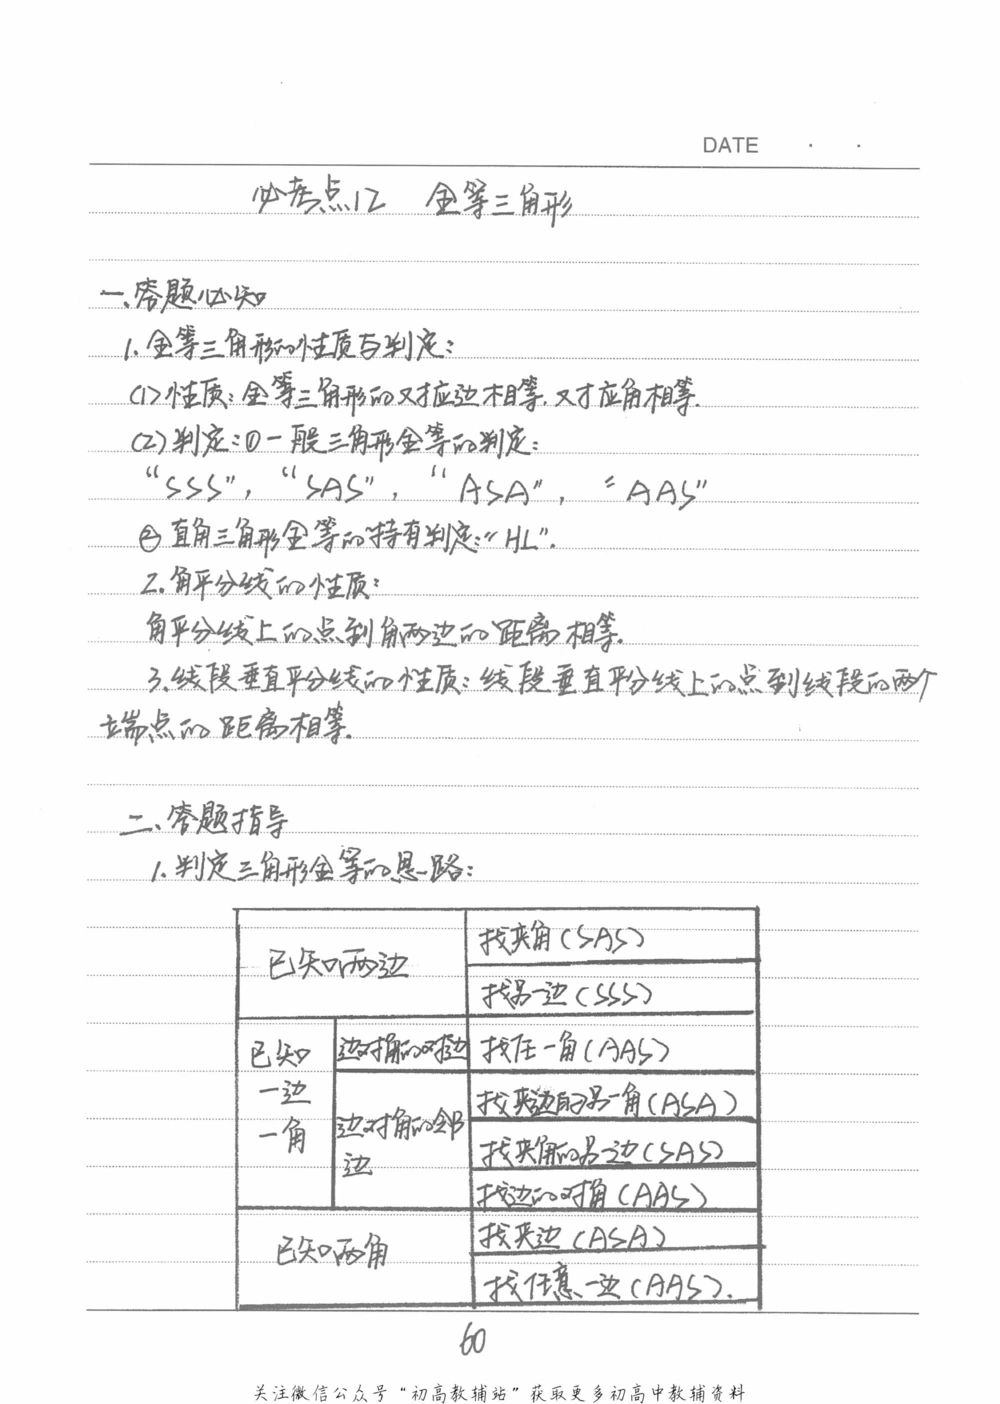 DATE · ·
必考点12 全等三角形
一、答题必知
1.全等三角形的性质与判定:
(1)性质:全等三角形的对应边相等.对应角相等.
(2)判定:①一般三角形全等的判定:
“SSS”, “SAS”, “ASA”, “AAS”
②直角三角形全等的特有判定:“HL”.
2.角平分线的性质:
角平分线上的点到角两边的距离相等.
3.线段垂直平分线的性质:线段垂直平分线上的点到线段的两个
端点的距离相等.
二、答题指导
1.判定三角形全等的思路:
已知两边
找夹角(SAS)
找另一边(SSS)
已知
一边
一角
边对角的对边
找任一角(AAS)
边对角的邻
边
找夹边的另一角(ASA)
找夹角的另一边(SAS)
找边的对角(AAS)
已知两角
找夹边(ASA)
找任意一边(AAS).
60
关注微信公众号“初高教辅站”获取更多初高中教辅资料